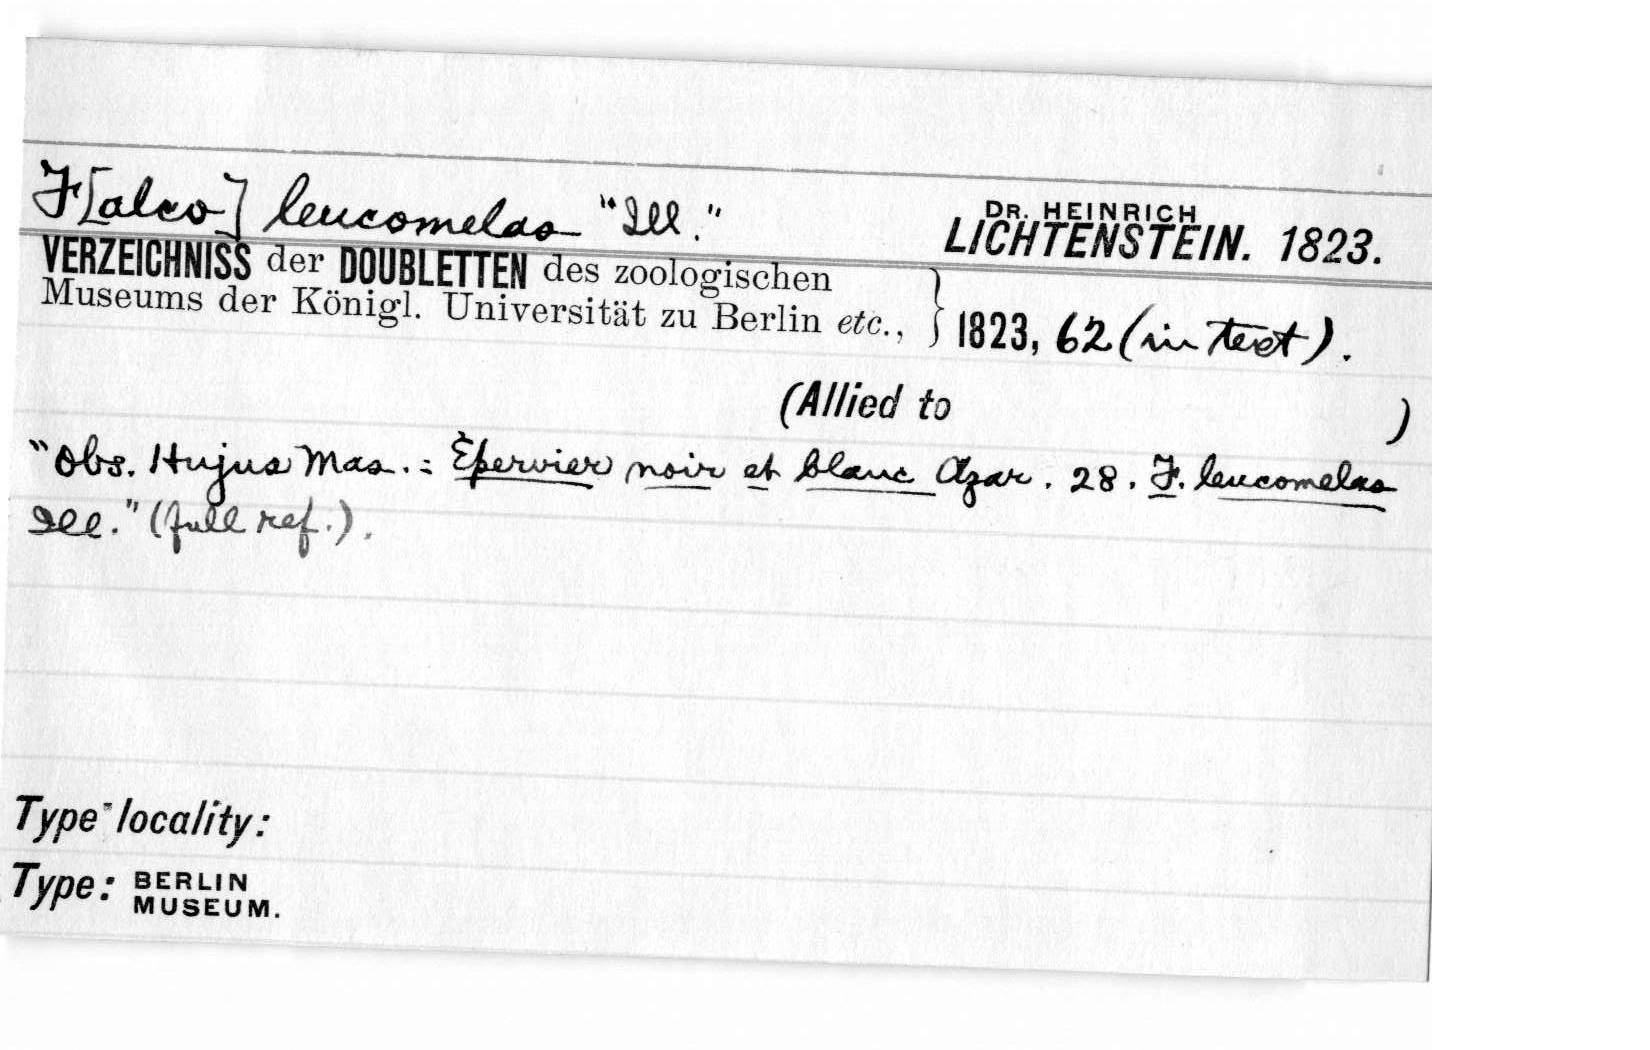 F[alco] leucomelas "Ill."
DR. HEINRICH
LICHTENSTEIN. 1823.
VERZEICHNISS der DOUBLETTEN des zoologischen
Museums der Königl. Universität zu Berlin etc., } 1823, 62 (in text).
(Allied to )
"Obs. Hujus Mas. = Épervier noir et blanc Azar. 28. F. leucomelas
Ill." (full ref.).
Type locality:
Type: BERLIN
MUSEUM.